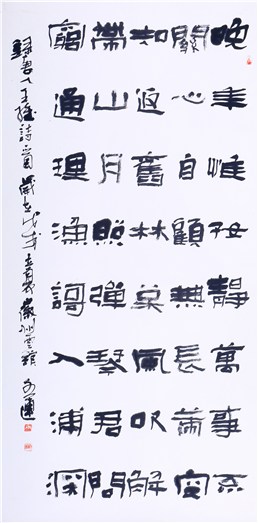 晚年唯好靜萬事不
關心自顧無長策空
知返舊林松風吹解
帶山月照彈琴君問
窮通理漁謌入浦深
錄唐人王維詩一首歲在戊子年